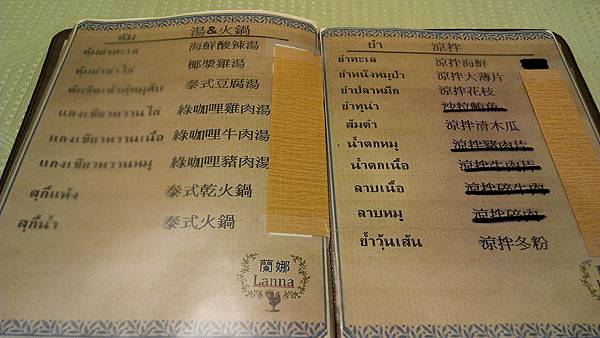 ต้ม 湯&火鍋
ต้มยำทะเล 海鮮酸辣湯
ต้มข่าไก่ 椰漿雞湯
ต้มจืดเต้าหู้หมูสับ 泰式豆腐湯
แกงเขียวหวานไก่ 綠咖哩雞肉湯
แกงเขียวหวานเนื้อ 綠咖哩牛肉湯
แกงเขียวหวานหมู 綠咖哩豬肉湯
สุกี้แห้ง 泰式乾火鍋
สุกี้น้ำ 泰式火鍋
蘭娜
Lanna
ยำ 涼拌
ยำทะเล 涼拌海鮮
ยำหนังหมูป่า 涼拌大薄片
ยำปลาหมึก 涼拌花枝
ยำทูน่า 沙拉鮪魚
ส้มตำ 涼拌清木瓜
น้ำตกหมู 涼拌豬肉片
น้ำตกเนื้อ 涼拌牛肉片
ลาบเนื้อ 涼拌碎牛肉
ลาบหมู 涼拌碎肉
ยำวุ้นเส้น 涼拌冬粉